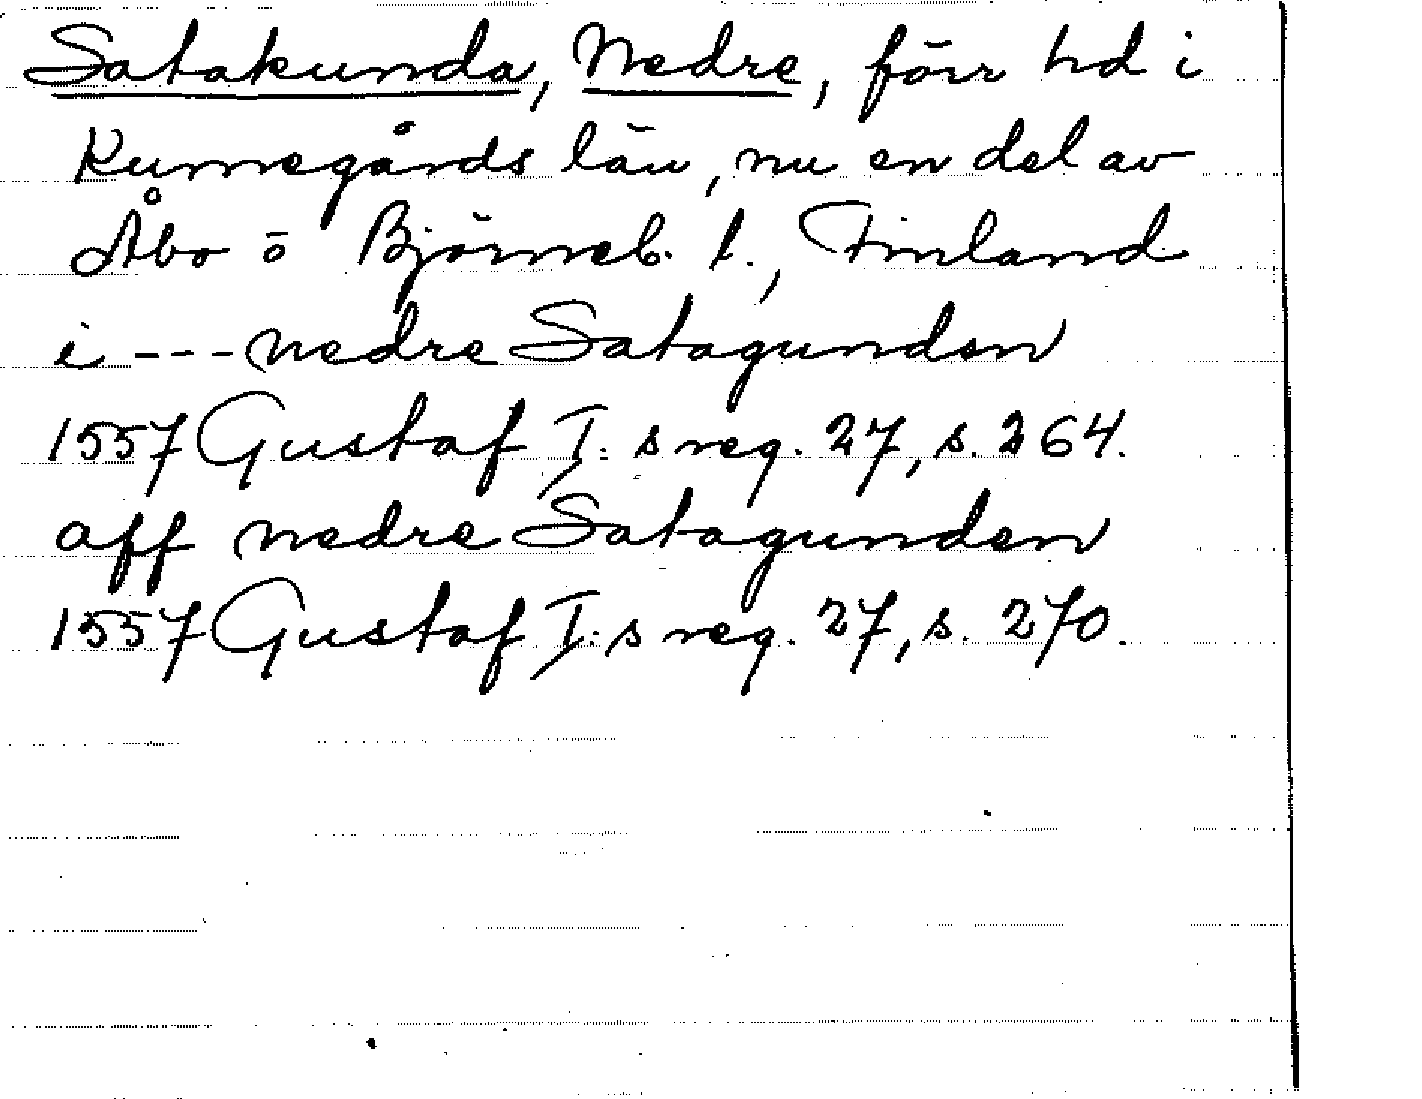 Satakunda, Nedre, förr hd i
Kumogårds län, nu en del av
Åbo o Björneb. l., Finland
i --- nedre Satagunden
1557 Gustaf I:s reg. 27, s. 264.
aff nedre Satagunden
1557 Gustaf I:s reg. 27, s. 270.